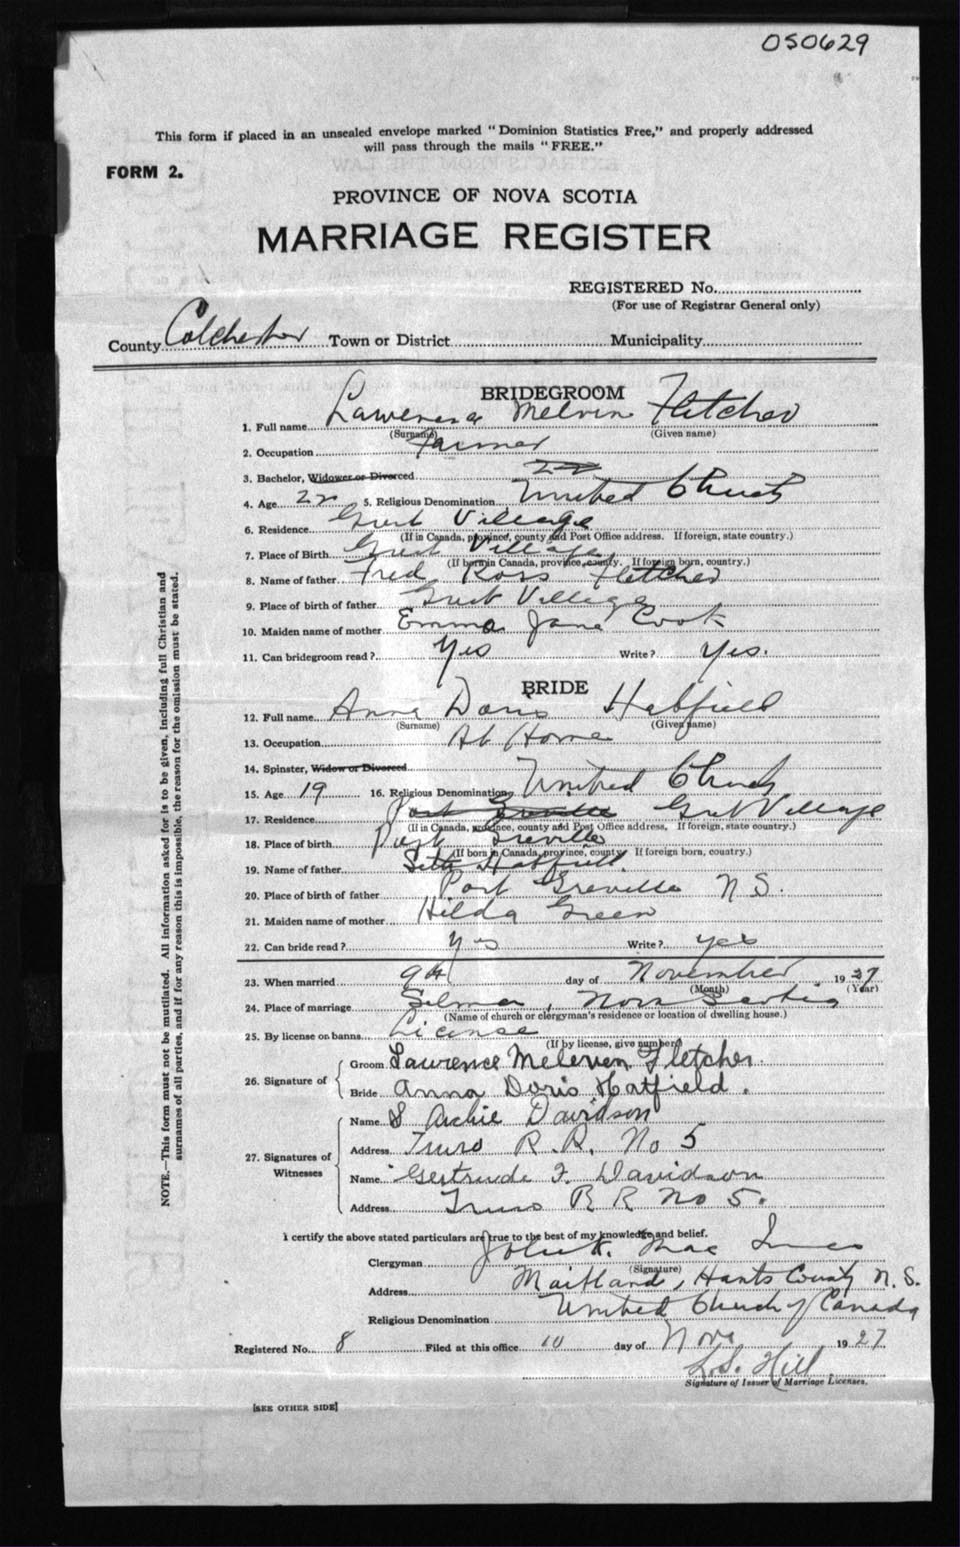 050629
This form if placed in an unsealed envelope marked "Dominion Statistics Free," and properly addressed
will pass through the mails "FREE."
FORM 2.
PROVINCE OF NOVA SCOTIA
MARRIAGE REGISTER
REGISTERED No.
(For use of Registrar General only)
County Colchester Town or District Municipality
BRIDEGROOM
1. Full name Lawrence Melvin Fletcher
(Surname) (Given name)
2. Occupation Farmer
3. Bachelor, Widower or Divorced 22
4. Age 22 5. Religious Denomination United Church
6. Residence Great Village
(If in Canada, province, county and Post Office address. If foreign, state country.)
7. Place of Birth Great Village
(If born in Canada, province, county. If foreign born, country.)
8. Name of father Fred Ross Fletcher
9. Place of birth of father Great Village
10. Maiden name of mother Emma Jane Cook
11. Can bridegroom read? Yes Write? Yes.
BRIDE
12. Full name Anna Doris Hatfield
(Surname) (Given name)
13. Occupation At Home
14. Spinster, Widow or Divorced
15. Age 19 16. Religious Denomination United Church
17. Residence Port Greville Great Village
(If in Canada, province, county and Post Office address, If foreign, state country.)
18. Place of birth Port Greville
(If born in Canada, province, county. If foreign born, country.)
19. Name of father Seth Hatfield.
20. Place of birth of father Port Greville N S.
21. Maiden name of mother Hilda Green
22. Can bride read? Yes Write? yes
23. When married 9th day of November 1927
(Month) (Year)
24. Place of marriage Selma, Nova Scotia
(Name of church or clergyman's residence or location of dwelling house.)
25. By license or banns License
(If by license, give number)
26. Signature of Groom Lawrence Melerven Fletcher.
Bride Anna Doris Hatfield.
27. Signatures of Witnesses Name S Archie Davidson
Address Truro R. R. No 5
Name Gertrude F. Davidson
Address Truro R R No 5.
I certify the above stated particulars are true to the best of my knowledge and belief.
Clergyman John K. Mac Innes
(Signature)
Address Maitland, Hants County N. S.
Religious Denomination United Church of Canada
Registered No. 8 Filed at this office 10 day of Nov. 1927
L. S. Hill
Signature of Issuer of Marriage Licenses.
[SEE OTHER SIDE]
NOTE.—This form must not be mutilated. All information asked for is to be given, including full Christian and
surnames of all parties, and if for any reason this is impossible, the reason for the omission must be stated.